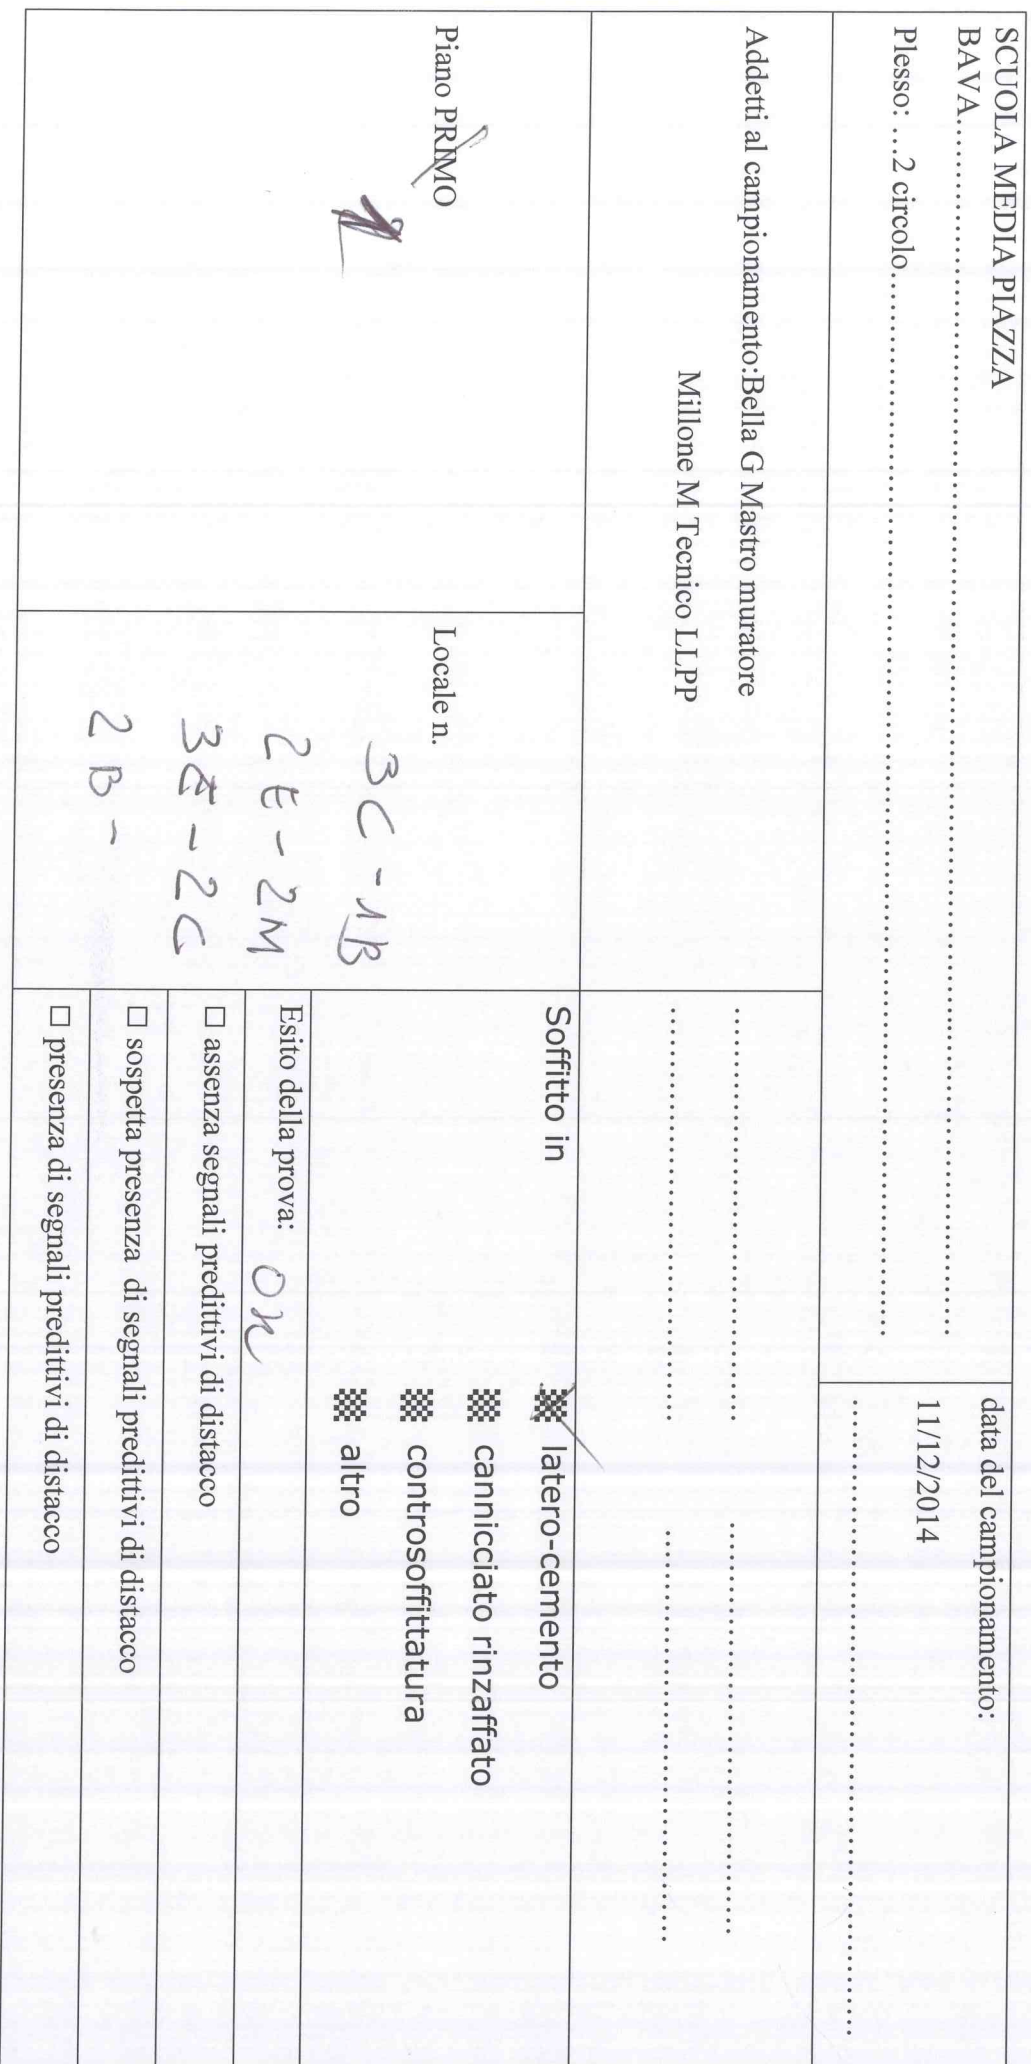 SCUOLA MEDIA PIAZZA
BAVA……………………………………………………
Plesso: …2 circolo……………………………………………………
data del campionamento:
11/12/2014
……………………………………………………
Addetti al campionamento:Bella G Mastro muratore
Millone M Tecnico LLPP
………………………………… …………………………………
………………………………… …………………………………
Piano PRIMO
Locale n.
3C - 1B
2E - 2M
3E - 2C
2B -
Soffitto in
latero-cemento
cannicciato rinzaffato
controsoffittatura
altro
Esito della prova: OK
□ assenza segnali predittivi di distacco
□ sospetta presenza di segnali predittivi di distacco
□ presenza di segnali predittivi di distacco